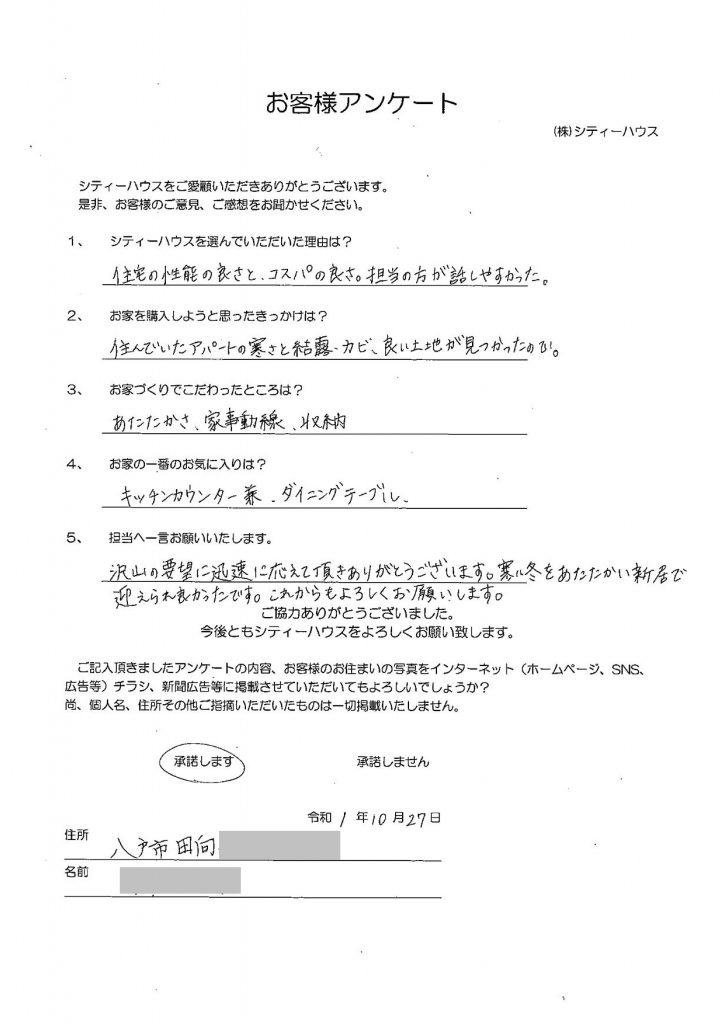 お客様アンケート
(株)シティーハウス
シティーハウスをご愛顧いただきありがとうございます。
是非、お客様のご意見、ご感想をお聞かせください。
1、 シティーハウスを選んでいただいた理由は？
住宅の性能の良さと、コスパの良さ。担当の方が話しやすかった。
2、 お家を購入しようと思ったきっかけは？
住んでいたアパートの寒さと結露・カビ、良い土地が見つかったので。
3、 お家づくりでこだわったところは？
あたたかさ、家事動線、収納
4、 お家の一番のお気に入りは？
キッチンカウンター兼、ダイニングテーブル、
5、 担当へ一言お願いいたします。
沢山の要望に迅速に応えて頂きありがとうございます。寒い冬をあたたかい新居で
迎えられ良かったです。これからもよろしくお願いします。
ご協力ありがとうございました。
今後ともシティーハウスをよろしくお願い致します。
ご記入頂きましたアンケートの内容、お客様のお住まいの写真をインターネット（ホームページ、SNS、
広告等）チラシ、新聞広告等に掲載させていただいてもよろしいでしょうか？
尚、個人名、住所その他ご指摘いただいたものは一切掲載いたしません。
承諾します 承諾しません
令和 1 年 10 月 27 日
住所 八戸市 田向
名前